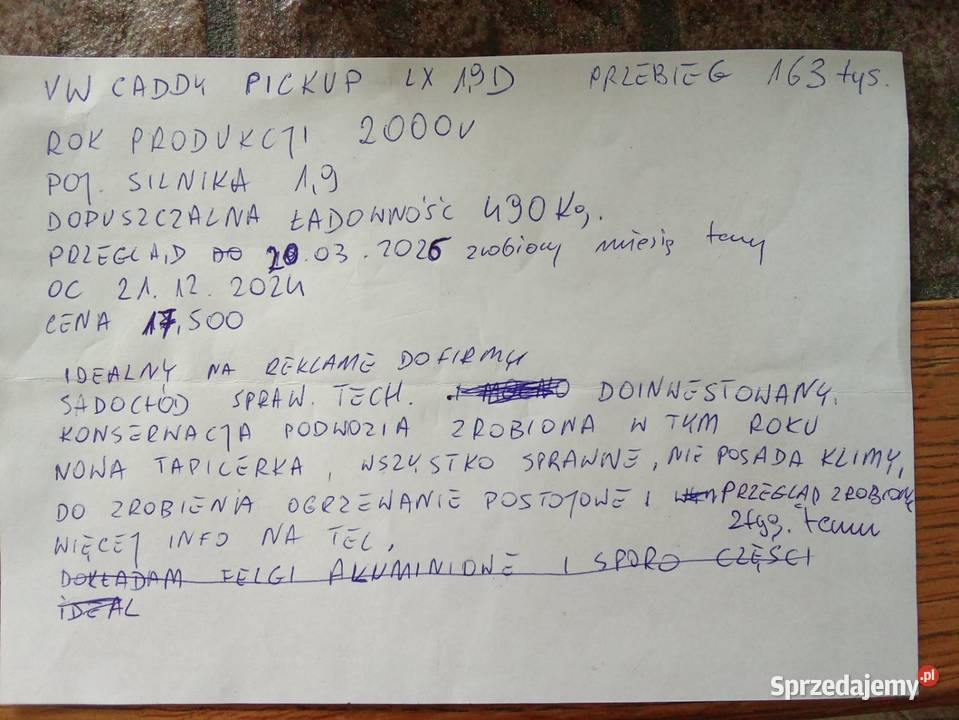 VW CADDY PICKUP LX 1,9D PRZEBIEG 163 tys.
ROK PRODUKCJI 2000r
POJ. SILNIKA 1,9
DOPUSZCZALNA ŁADOWNOŚĆ 490 Kg.
PRZEGLĄD DO 20.03.2025 zrobiony miesiąc temu
OC 21.12.2024
CENA 17,500
IDEALNY NA REKLAMĘ DO FIRMY
SADOCHÓD SPRAW. TECH. I MOCNO DOINWESTOWANY.
KONSERWACJA PODWOZIA ZROBIONA W TYM ROKU
NOWA TAPICERKA, WSZYSTKO SPRAWNE, NIE POSADA KLIMY,
DO ZROBIENIA OGRZEWANIE POSTOJOWE I PRZEGLĄD ZROBIONY
2 tyg. temu
WIĘCEJ INFO NA TEL,
DOKŁADAM FELGI ALUMINIOWE I SPORO CZĘŚCI
IDEAL
Sprzedajemy.pl